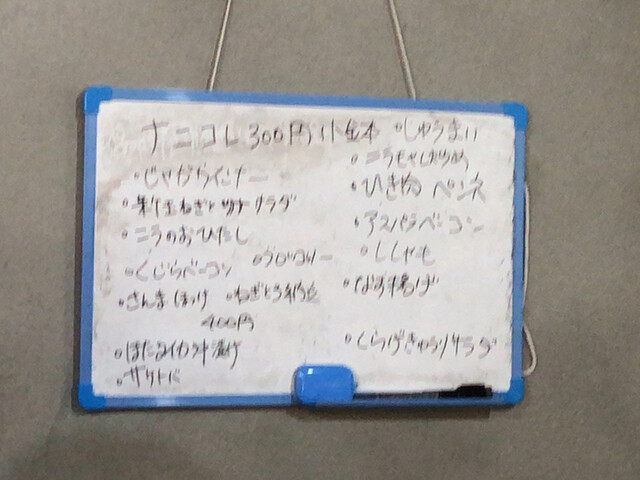 300円 しゅうまい
じゃがらインナー
ニラもやし炒め
ひき肉 ペンネ
新玉ねぎとツナサラダ
アスパラベーコン
ニラのおひたし
ししゃも
くじらベーコン ブロッコリー
なす揚げ
さんま ほっけ ねぎとろ納豆
400円
くらげきゅうりサラダ
ほたるイカ沖漬け